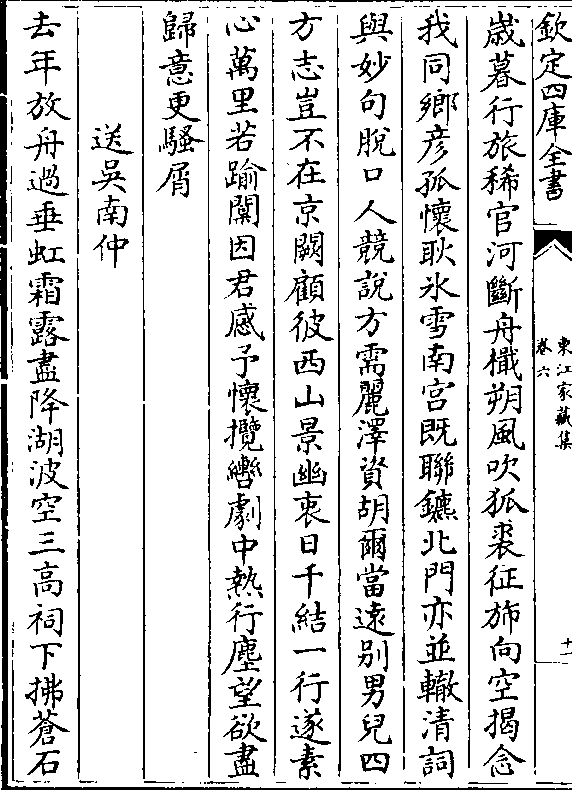 欽定四庫全書
東江家藏集
卷六
十一
歲暮行旅稀官河斷舟檥朔風吹狐裘征斾向空揭念
我同鄉彦孤懷耿氷雪南宫既聯鑣北門亦並轍清詞
與妙句脫口人競說方需麗澤資胡爾當逺别男兒四
方志豈不在京闕顧彼西山景幽衷日千結一行遂素
心萬里若踰闑因君感予懷攬轡劇中熱行塵望欲盡
歸意更騷屑
送吳南仲
去年放舟過垂虹霜露盡降湖波空三高祠下拂蒼石